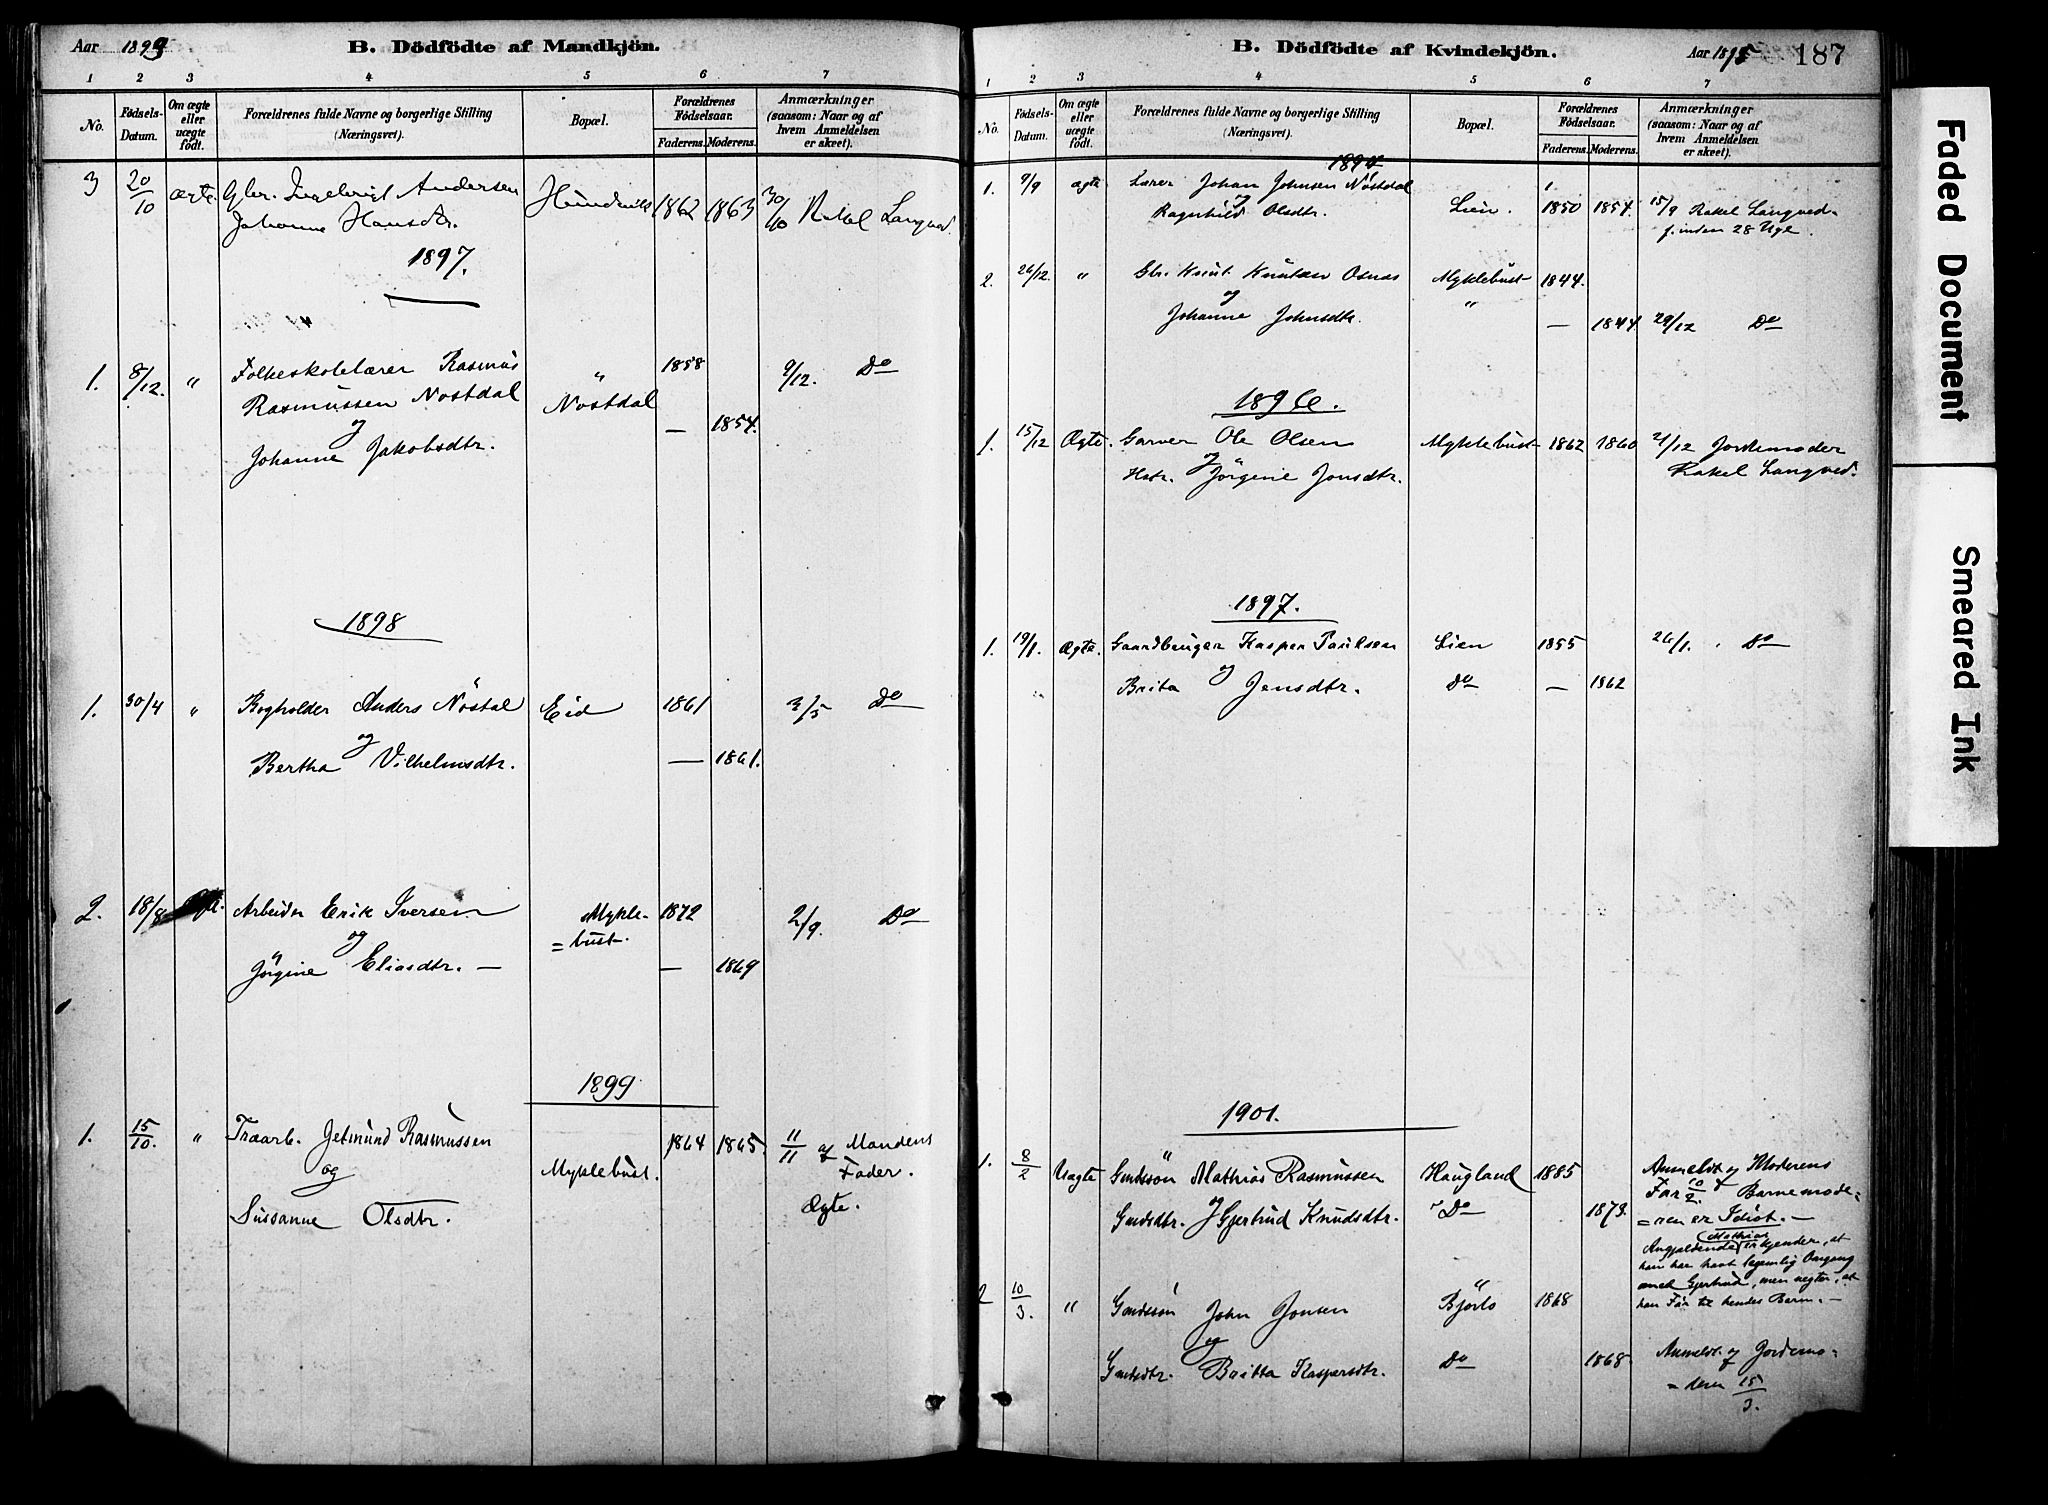 Aar 1899 B. Dödfödte af Mandkjön.
1 2 3 4 5 6 7
No. Födsels-Datum. Om ægte eller uægte födt. Forældrenes fulde Navne og borgerlige Stilling (Næringsvei). Bopæl. Forældrenes Födselsaar. Faderens. Moderens. Anmærkninger (saasom: Naar og af hvem Anmeldelsen er skeet).
3 20/10 ægte. Gbr. Ingebrigt Andersen Hundeik 1862 1863 30/10 Rakel Langved.
Johanne Hansdtr.
1897.
1. 8/12. " Folkeskolelærer Rasmus " 1858 9/12. Do
Rasmussen Nostdal Nostdal
og — 1854.
Johanne Jakobsdtr.
1898
1. 30/4 " Bogholder Anders Nöstal Eid 1861 3/5 Do
og
Bertha Vilhelmsdtr. — 1861.
2. 18/8 Ægte. Arbeider Erik Iversen Mykle- 1872 2/9. Do
og =bust.
Jörgine Eliasdtr. — — 1869
1899
1. 15/10. " Traarb. Jetmund Rasmussen 1864 1865. 11/11 af Mandens
og Myklebust. Fader.
Sussanne Olsdtr. Ægte.
B. Dödfödte af Kvindekjön. Aar 1895 187
1 2 3 4 5 6 7
No. Födsels-Datum. Om ægte eller uægte födt. Forældrenes fulde Navne og borgerlige Stilling (Næringsvei). Bopæl. Forældrenes Födselsaar. Faderens. Moderens. Anmærkninger (saasom: Naar og af hvem Anmeldelsen er skeet).
1894
1. 9/9 ægte Lærer Johan Johnsen Nöstdal
og
Ragnhild Olsdtr. Lien. 1850 1854. 15/9 Rakel Langved.
f. inden 28 Uge.
2. 26/12 " Gbr. Knut Knutsen Osnas Myklebust 1844.
og "
Johanne Johnsdtr. — 1844. 29/12 Do
1896.
1. 15/12 Ægte. Garver Ole Olsen Myklebust 1862 1860 21/12 Jordemoder
og
Hstr. Jörgine Jonsdtr. Rakel Langved.
1897.
1. 19/1. Ægte. Gaardbruger Kasper Paulsen Lien 1855 26/1. Do
Brita og Jensdtr. Do — 1862
1901.
1. 8/2 Uægte Gmdssön Mathias Rasmussen Haugland 1885 Anmeldt af Moderens
og Far 10/2. Barnemode=
Gmdsdtr. Gjertrud Knudsdtr. Do 1873. =ren er Idiot. —
Mathias
Angjældende erkjender, at
han har havt legemlig Omgang
med Gjertrud, men negter, at
han Far til hendes Barn. —
2 10/3. " Gmdssön John Jonsen Björlo 1868
og
Gmdsdtr. Britta Kaspersdtr. Do 1868. Anmeldt af Jordemo=
=deren 15/3.
Faded Document
Smeared Ink